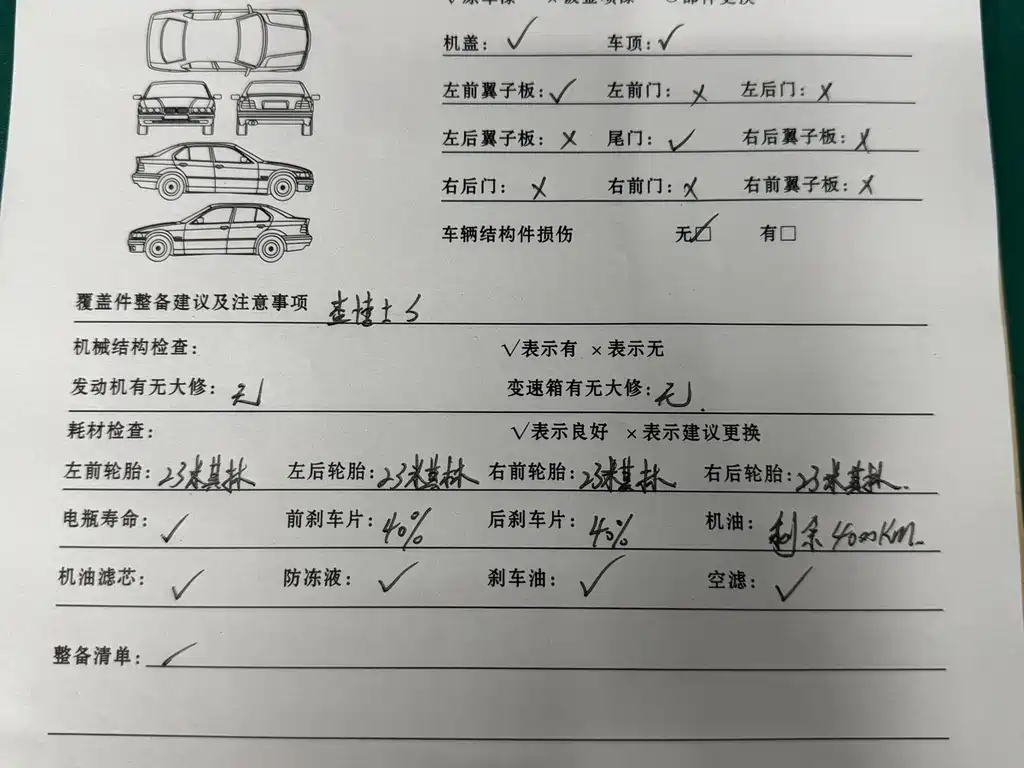 √原车漆 ×钣金喷漆 ○部件更换
机盖：√ 车顶：√
左前翼子板：√ 左前门：× 左后门：×
左后翼子板：× 尾门：√ 右后翼子板：×
右后门：× 右前门：× 右前翼子板：×
车辆结构件损伤 无☑ 有□
覆盖件整备建议及注意事项 查博士
机械结构检查： √表示有 ×表示无
发动机有无大修：无 变速箱有无大修：无.
耗材检查： √表示良好 ×表示建议更换
左前轮胎：23米其林 左后轮胎：23米其林 右前轮胎：23米其林 右后轮胎：23米其林.
电瓶寿命：√ 前刹车片：40% 后刹车片：40% 机油：剩余4000KM.
机油滤芯：√ 防冻液：√ 刹车油：√ 空滤：√
整备清单：√